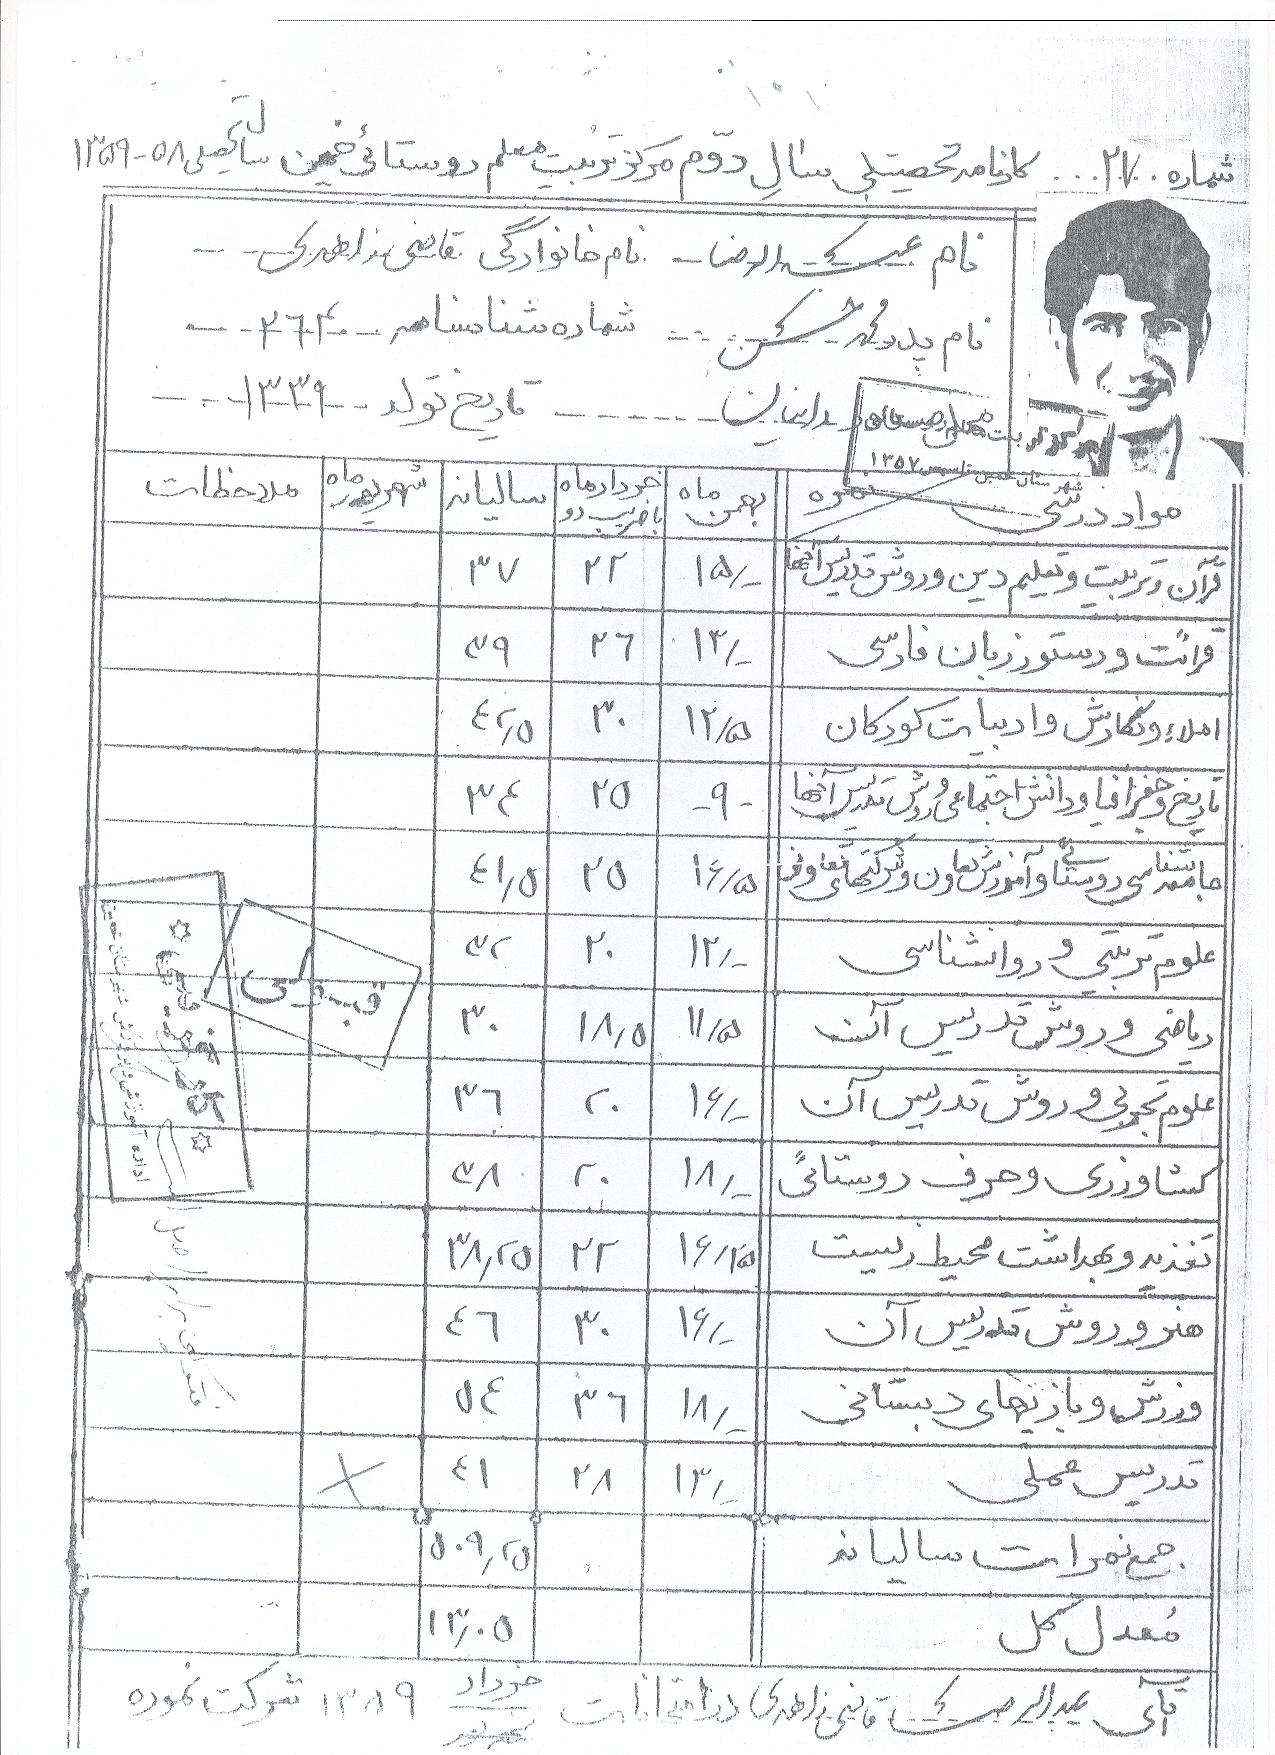 شماره ..۲۷... کارنامه تحصیلی سال دوّم مرکز تربیت معلم روستائی خمین سال تحصیلی ۵۸-۱۳۵۹
نام عبدالرضا نام خانوادگی قاضی زاهدی
نام پدر محمد حسن شماره شناسنامه ۲۶۴
تاریخ تولد ۱۳۳۹
شهرستان خمین تاسیس ۱۳۵۷
مواد درسی نمره بهمن ماه خرداد ماه با ضریب دو سالیانه شهریور ماه ملاحظات
قرآن و تربیت و تعلیم دین و روش تدریس آنها ۱۵/- ۲۲ ۳۷
قرائت و دستور زبان فارسی ۱۳/- ۲۶ ۳۹
املاء و نگارش و ادبیات کودکان ۱۲/۵ ۳۰ ۴۲/۵
تاریخ و جغرافیا و دانش اجتماعی و روش تدریس آنها -۹- ۲۵ ۳۴
جامعه شناسی روستائی و آموزش تعاون و شرکتهای تعاونی ۱۶/۵ ۲۵ ۴۱/۵
علوم تربیتی و روانشناسی ۱۲/- ۲۰ ۳۲
ریاضی و روش تدریس آن ۱۱/۵ ۱۸/۵ ۳۰
علوم تجربی و روش تدریس آن ۱۶/- ۲۰ ۳۶
کشاورزی و حرف روستائی ۱۸/- ۲۰ ۳۸
تغذیه و بهداشت محیط زیست ۱۶/۲۵ ۲۲ ۳۸/۲۵
هنر و روش تدریس آن ۱۶/- ۳۰ ۴۶
ورزش و بازیهای دبستانی ۱۸/- ۳۶ ۵۴
تدریس عملی ۱۳/- ۲۸ ۴۱
جمع نمرات سالیانه ۵۰۹/۲۵
معدل کل ۱۳/۰۵
قبولی
اداره آموزش و پرورش شهرستان خمین
آقای عبدالرضا قاضی زاهدی در امتحانات خرداد ۱۳۵۹ شرکت نموده
شهریور